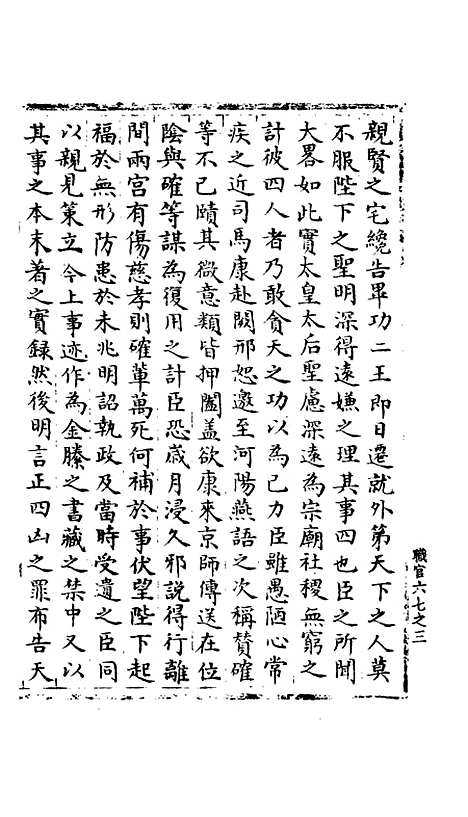 親賢之宅纔告畢功二王即日遷就外第天下之人莫
不服陛下之聖明深得遠嫌之理其事四也臣之所聞
大畧如此實太皇太后聖慮深遠為宗廟社稷無窮之
計彼四人者乃敢貪天之功以為己力臣雖愚陋心常
疾之近司馬康赴闕邢恕邀至河陽燕語之次稱賛確
等不已賾其微意類皆押闔盖欲康来京師傳送在位
陰與確等謀為復用之計臣恐歳月浸久邪説得行離
間兩宫有傷慈孝則確軰萬死何補於事伏望陛下起
福於無形防患於未兆明詔執政及當時受遺之臣同
以親見策立今上事迹作為金縢之書藏之禁中又以
其事之本末著之實録然後明言正四凶之罪布告天
職官六七之三